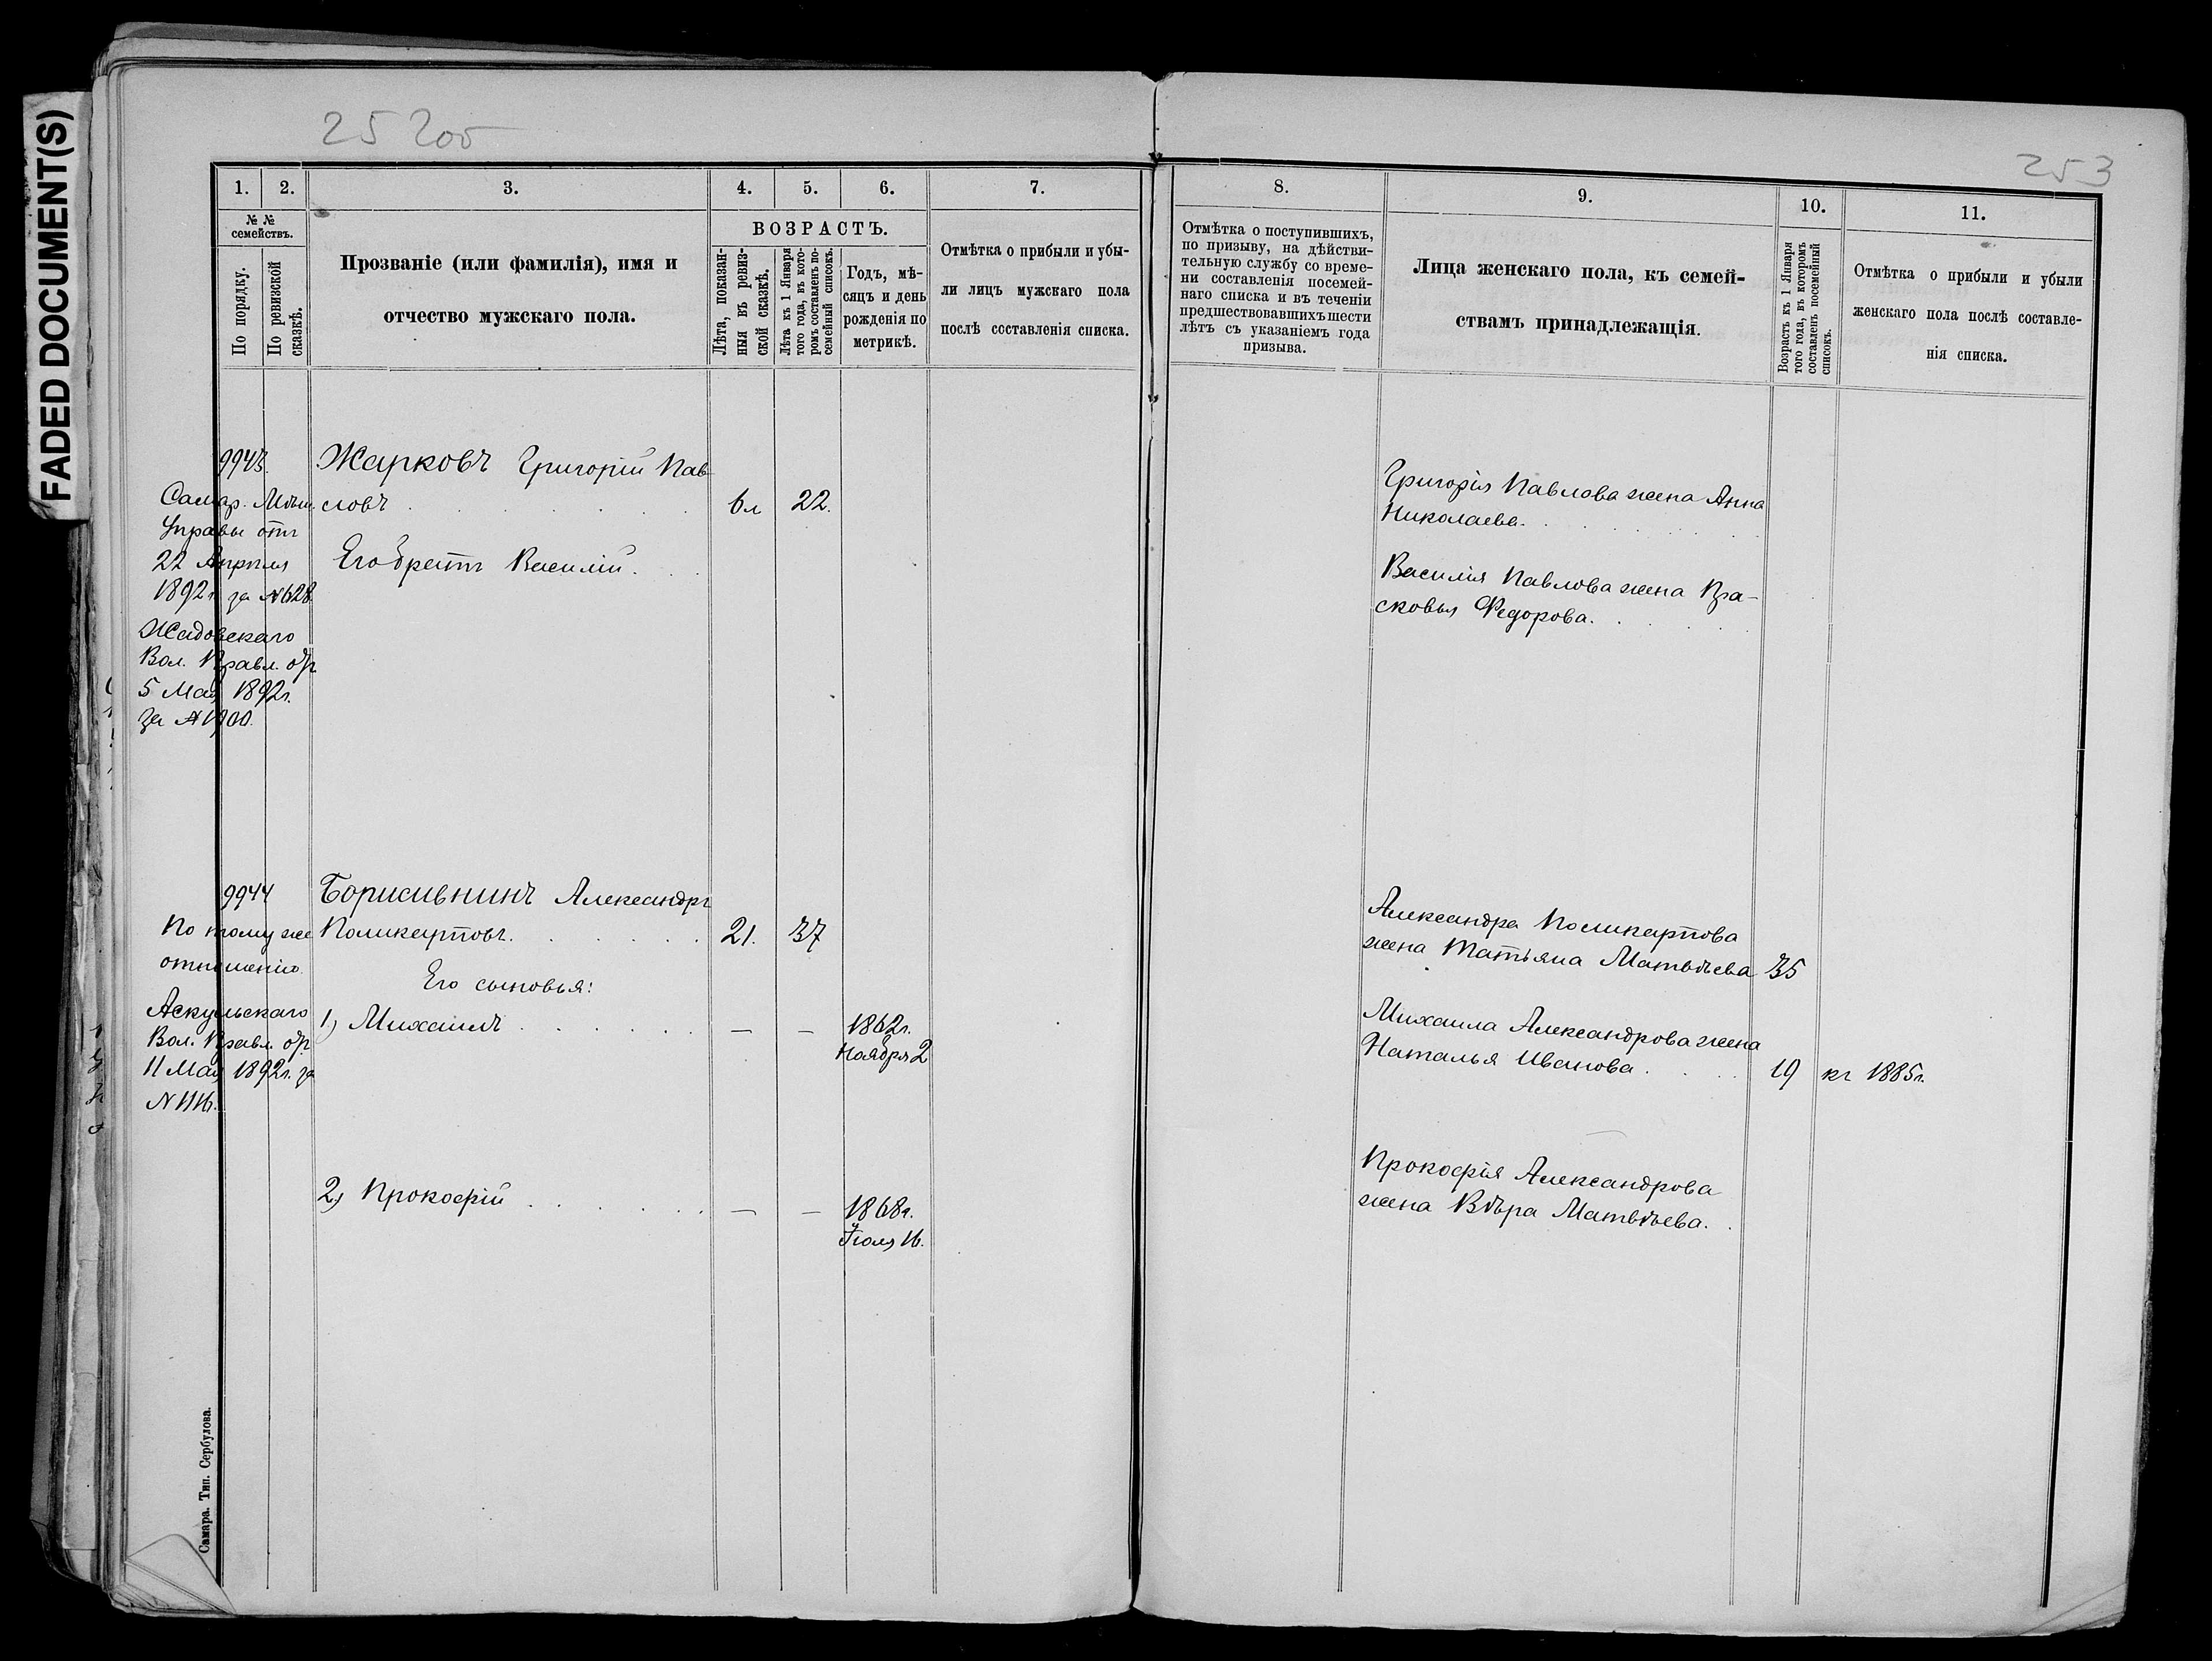 FADED DOCUMENT(S)
253
1. 2. 3. 4. 5. 6. 7.
№ №
семействъ.
По порядку.
По ревизской
сказкѣ.
Прозваніе (или фамилія), имя и
отчество мужскаго пола.
ВОЗРАСТЪ.
Лѣта, показан-
ныя въ ревиз-
ской сказкѣ.
Лѣта къ 1 Января
того года, въ кото-
ромъ составленъ по-
семейный списокъ.
Годъ, мѣ-
сяцъ и день
рожденія по
метрикѣ.
Отмѣтка о прибыли и убы-
ли лицъ мужскаго пола
послѣ составленія списка.
9943.
Самар. Мѣщ.
Управы отъ
22 Апрѣля
1892г. за №628.
Жадовскаго
Вол. Правл. отъ
5 Мая 1892г.
за №1900.
Жарковъ Григорій Пав-
ловъ 6л 22.
Его братъ Василій.
9944
По тому же
отношенію
Аскульскаго
Вол. Правл. отъ
11 Мая 1892г. за
№1116.
Александръ
Поликарповъ. 21. 37
Его сыновья:
1) Михаилъ — — 1862г.
Ноября 2
2) Прокофій — — 1868г.
Іюля 16.
Самара. Тип. Сербулова.
8. 9. 10. 11.
Отмѣтка о поступившихъ,
по призыву, на дѣйстви-
тельную службу со време-
ни составленія посемей-
наго списка и въ теченіи
предшествовавшихъ шести
лѣтъ съ указаніемъ года
призыва.
Лица женскаго пола, къ семей-
ствамъ принадлежащія.
Возрастъ къ 1 Января
того года, въ которомъ
составленъ посемейный
списокъ.
Отмѣтка о прибыли и убыли
женскаго пола послѣ составле-
нія списка.
Григорія Павлова жена Анна
Николаева.
Василія Павлова жена Пра-
сковья Федорова.
Александра Поликарпова
жена Татьяна Матвѣева 35
Михаила Александрова жена
Наталья Иванова 19 къ 1885г.
Прокофія Александрова
жена Вѣра Матвѣева.